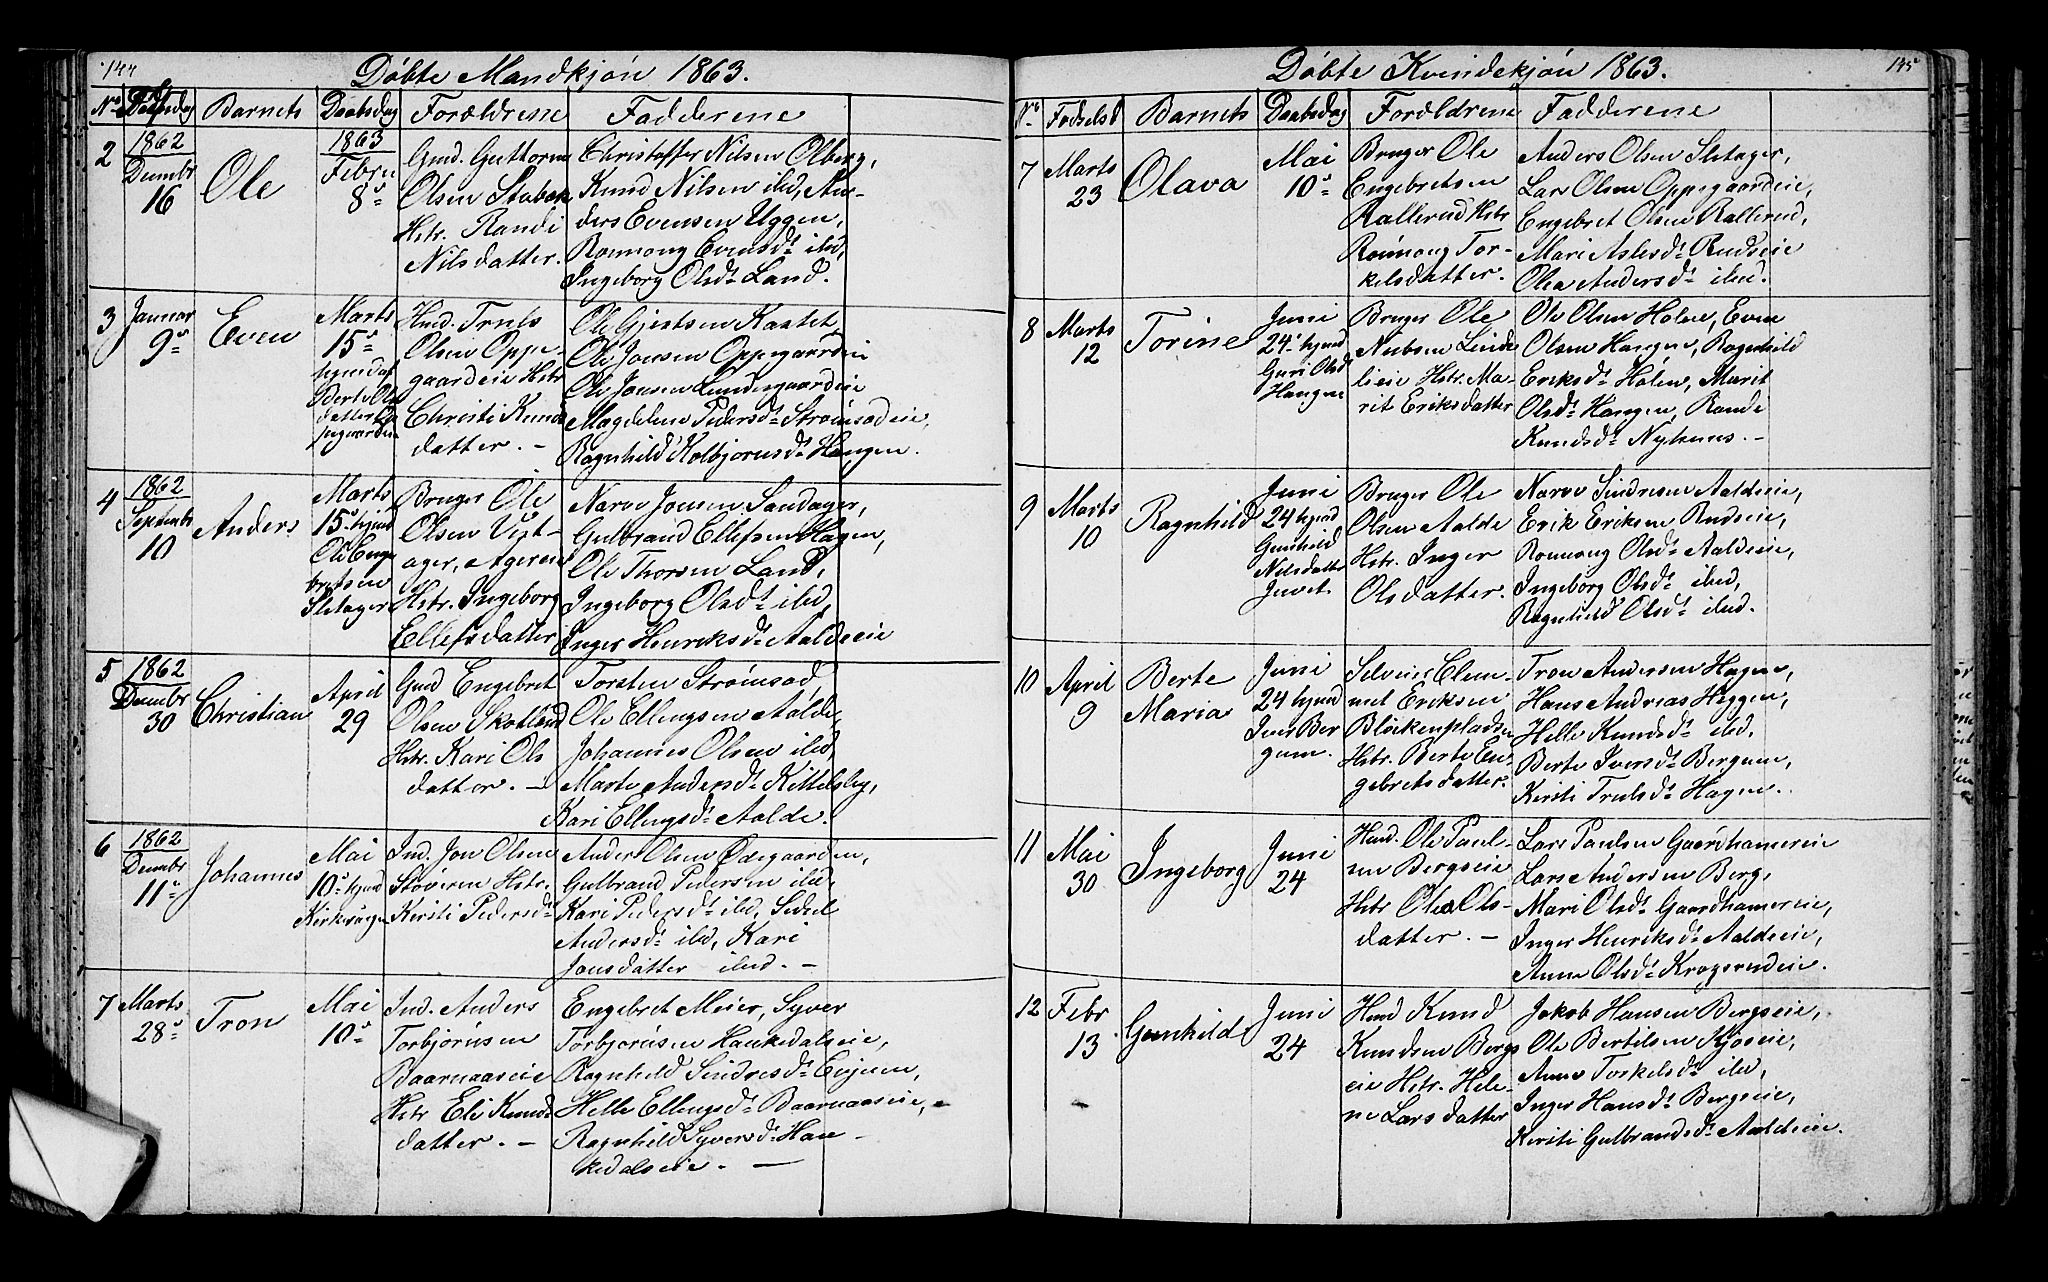 144
Döbte Mandkjön 1863.
No Barnets Daabsdag Forældrene Fadderene
2
1862
Decembr
16
Ole
1863
Febru
8de
Gmd. Guttorm
Olsen
Hstr. Randi
Nilsdatter.
Christoffer Nilsen Olberg,
Knud Nilsen ibid, An-
ders Evensen Uggen,
Ronnoug Evensdt ibid,
Ingeborg Olsdt Land.
3
Januar
9de
Even
Marts
15de
hjemdøf
Berte Ols
datter Op
pegaardeie
Hmd. Truls
Olsen Oppe-
gaardeie Hstr
Christi Knuds
datter. –
Ole Gjertsen Kastet
Ole Jonsen Oppegaardeie
Ole Jonsen Lundergaardeie
Magdelene Pedersdt Strömsodeie,
Ragnhild Kolbjörnsdt Haugen.
4
1862
Septembr
10
Anders
Marts
15de hjemd
Ole Enge
bretsen
Sletager
Bruger Ole
Olsen Vest-
ager, Ageren
Hstr. Ingeborg
Ellefsdatter
Narve Jonsen Sandager,
Gulbrand Ellefsen Hagen,
Ole Thorsen Land,
Ingeborg Olsdt ibid,
Inger Henriksdt Aaldeeie
5
1862
Decembr
30
Christian
April
29
Gmd Engebret
Olsen Skotland
Hstr. Kari Ols
datter. –
Torsten Strömsod
Ole Ellingsen Aalde,
Johannes Olsen ibid,
Marte Andersdt Kittelsby,
Kari Ellingsdt Aalde.
6
1862
Decembr
11te
Johannes
Mai
10de hjemd
Kirkesanger
Ind. Jon Olsen
Stöveren Hstr.
Kirsti Pedersdt
Anders Olsen Ödegaarden,
Gulbrand Pedersen ibid,
Kari Pedersdt ibid, Sidsel
Andersdt ibid, Kari
Jonsdatter ibid. –
7
Marts
28de
Tron
Mai
10de
Ind. Anders
Torbjörnsen
Baarnaaseie
Hstr Eli Knuds
datter. –
Engebret Meier, Syver
Torbjörnsen Haukedalseie,
Ragnhild Sindresdt Evjuen,
Helle Ellingsdt Baarnaaseie,
Ragnhild Syversdt Hau –
kedalseie. –
145
Döbte Kvindekjön 1863.
No Födselsd Barnets Daabsdag Forældrene Fadderene
7
Marts
23
Olava
Mai
10de
Bruger Ole
Engebretsen
Rallerud Hstr
Ronnoug Tor-
kelsdatter.
Anders Olsen Sletager,
Lars Olsen Oppegaardeie,
Engebret Olsen Rallerud,
Mari Aslesdt Rudseie
Olea Andersdt ibid.
8
Marts
12
Torine
Juni
24de hjemd
Guri Olsd
Haugen
Bruger Ole
Nubsen Linde
lieie Hstr. Ma-
rit Eriksdatter
Ole Olsen Holen, Even
Olsen Haugen, Ragnhild
Eriksdt Holen, Marit
Olsdt Haugen, Rande
Knudsdt Nyhuus. –
9
Marts
10
Ragnhild
Juni
24 hjemd
Gunhild
Nilsdatter
Juvet.
Bruger Ole
Olsen Aalde
Hstr. Inger
Olsdatter.
Narve Sindresen Aaldeeie,
Erik Eriksen Rudseie,
Ronnoug Olsdt Aaldeeie,
Ingeborg Olsdt ibid,
Ragnhild Olsdt ibid.
10
April
9
Berte
Maria
Juni
24 hjemd
Iver Ber
gum.
Selveier Clem-
met Eriksen
Blökenpladsen
Hstr. Berte En-
gebretsdatter.
Tron Andersen Hagen,
Hans Andreas Heggen,
Helle Knudsdt ibid,
Berte Iversdt Bergum,
Kirsti Trulsdt Hagen.
11
Mai
30
Ingeborg
Juni
24
Hmd. Ole Paul-
sen Bergseie
Hstr Olea Ols-
datter. –
Lars Paulsen Gaardhamereie
Lars Andersen Berg,
Mari Olsdt Gaardhamereie,
Inger Henriksdt Aaldseie,
Anne Olsdt Kragsrudeie.
12
Febr
13
Gunhild
Juni
24
Hmd Knud
Knudsen Bergs
eie Hstr. Hele-
ne Larsdatter
Jakob Hansen Bergseie,
Ole Bertilsen Kjoseie,
Anne Torkelsdt ibid,
Inger Hansdt Bergseie,
Kirsti Gulbrandsdt Aaldeeie.